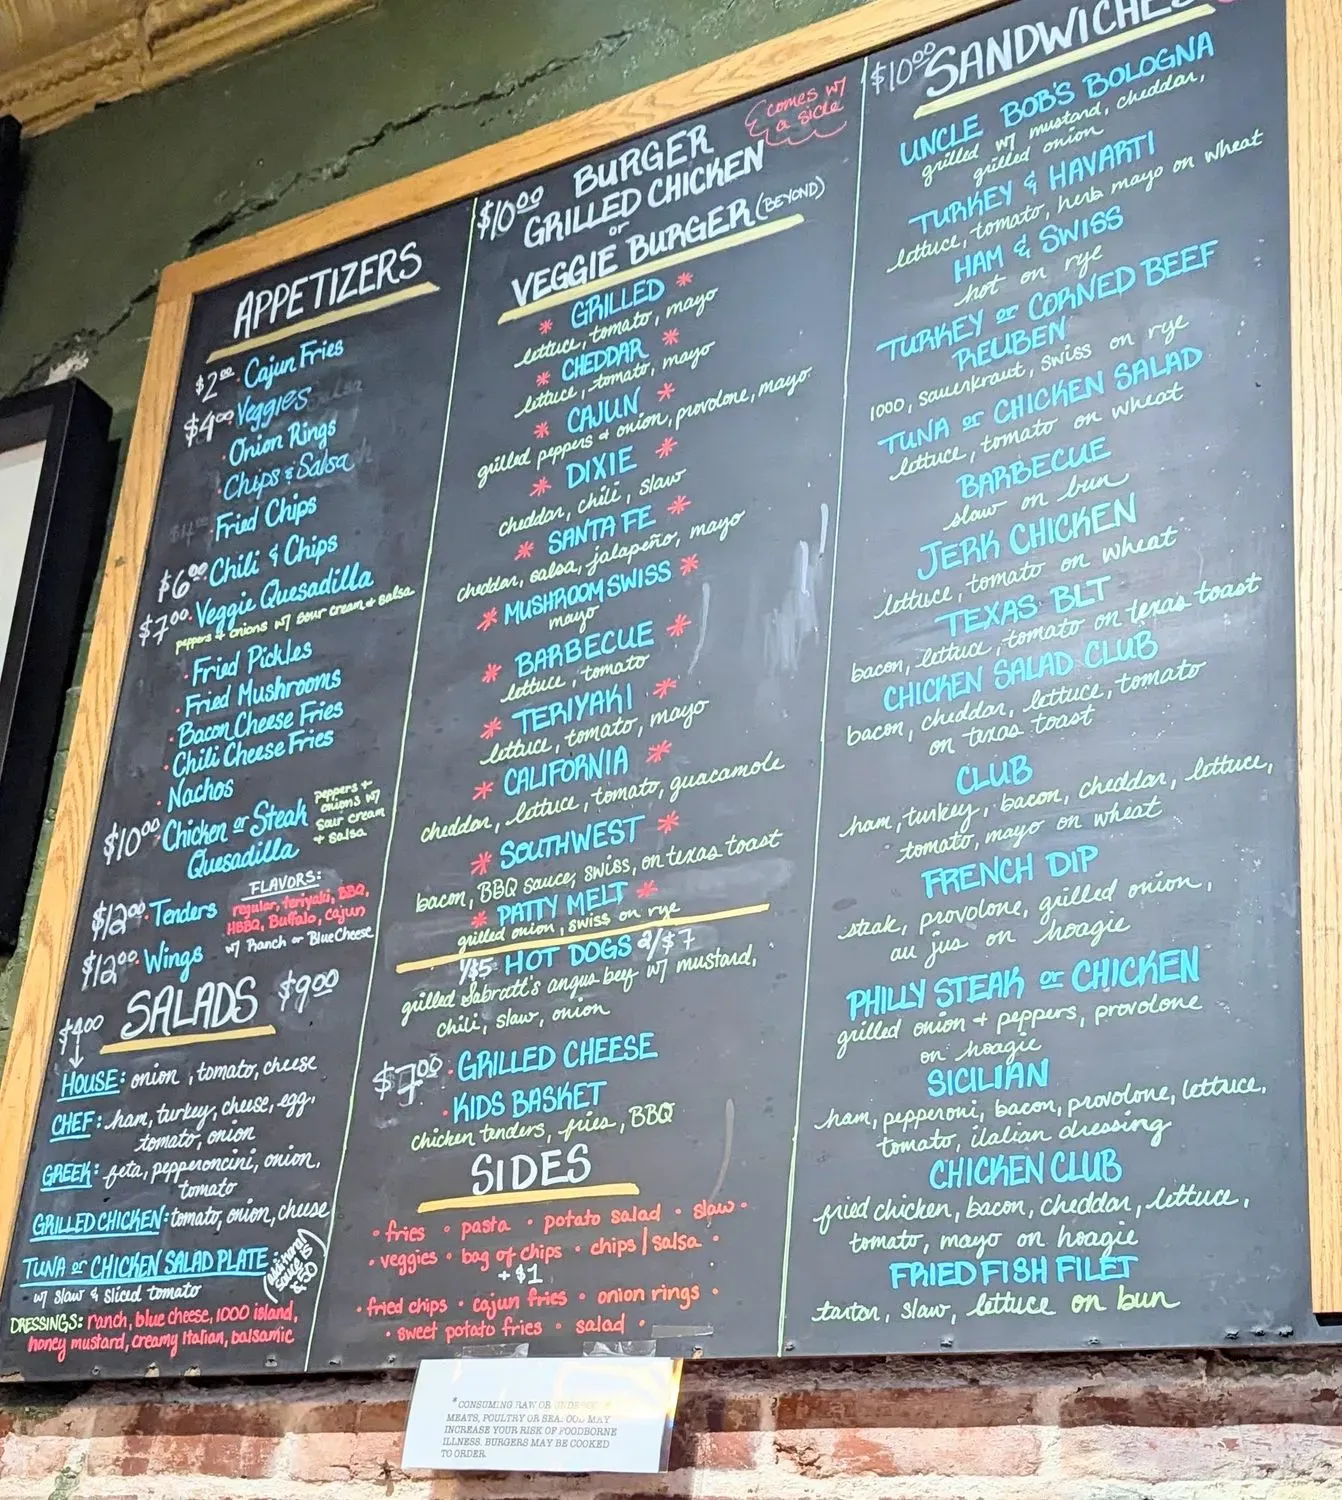 APPETIZERS
$2.00 · Cajun Fries
$4.00 · Veggies
· Onion Rings
· Chips & Salsa
· Fried Chips
$6.00 · Chili & Chips
$7.00 · Veggie Quesadilla
peppers + onions w/ sour cream + salsa
· Fried Pickles
· Fried Mushrooms
· Bacon Cheese Fries
· Chili Cheese Fries
· Nachos
$10.00 · Chicken or Steak
Quesadilla
peppers +
onions w/
sour cream
+ salsa
$12.00 · Tenders
$12.00 · Wings
FLAVORS:
regular, teriyaki, BBQ,
HBBQ, Buffalo, cajun
w/ Ranch or Blue Cheese
SALADS $9.00
$4.00
HOUSE: onion, tomato, cheese
CHEF: ham, turkey, cheese, egg,
tomato, onion
GREEK: feta, pepperoncini, onion,
tomato
GRILLED CHICKEN: tomato, onion, cheese
TUNA or CHICKEN SALAD PLATE
w/ slaw & sliced tomato
DRESSINGS: ranch, blue cheese, 1000 island,
honey mustard, creamy Italian, balsamic
$10.00 BURGER
GRILLED CHICKEN
or
VEGGIE BURGER (BEYOND)
comes w/
a side
* GRILLED *
lettuce, tomato, mayo
* CHEDDAR *
lettuce, tomato, mayo
* CAJUN *
grilled peppers & onion, provolone, mayo
* DIXIE *
cheddar, chili, slaw
* SANTA FE *
cheddar, salsa, jalapeño, mayo
* MUSHROOM SWISS *
mayo
* BARBECUE *
lettuce, tomato
* TERIYAKI *
lettuce, tomato, mayo
* CALIFORNIA *
cheddar, lettuce, tomato, guacamole
* SOUTHWEST *
bacon, BBQ sauce, swiss, on texas toast
* PATTY MELT *
grilled onion, swiss on rye
1/$5 HOT DOGS 2/$7
grilled Sabratt's angus beef w/ mustard,
chili, slaw, onion
$7.00 · GRILLED CHEESE
· KIDS BASKET
chicken tenders, fries, BBQ
SIDES
· fries · pasta · potato salad · slaw ·
· veggies · bag of chips · chips/salsa ·
+ $1
· fried chips · cajun fries · onion rings ·
· sweet potato fries · salad ·
*CONSUMING RAW OR
MEATS, POULTRY OR SEAFOOD MAY
INCREASE YOUR RISK OF FOODBORNE
ILLNESS. BURGERS MAY BE COOKED
TO ORDER.
$10.00 SANDWICHES
UNCLE BOB'S BOLOGNA
grilled w/ mustard, cheddar,
grilled onion
TURKEY & HAVARTI
lettuce, tomato, herb mayo on wheat
HAM & SWISS
hot on rye
TURKEY or CORNED BEEF
REUBEN
1000, sauerkraut, swiss on rye
TUNA or CHICKEN SALAD
lettuce, tomato on wheat
BARBECUE
slaw on bun
JERK CHICKEN
lettuce, tomato on wheat
TEXAS BLT
bacon, lettuce, tomato on texas toast
CHICKEN SALAD CLUB
bacon, cheddar, lettuce, tomato
on texas toast
CLUB
ham, turkey, bacon, cheddar, lettuce,
tomato, mayo on wheat
FRENCH DIP
steak, provolone, grilled onion,
au jus on hoagie
PHILLY STEAK or CHICKEN
grilled onion + peppers, provolone
on hoagie
SICILIAN
ham, pepperoni, bacon, provolone, lettuce,
tomato, italian dressing
CHICKEN CLUB
fried chicken, bacon, cheddar, lettuce,
tomato, mayo on hoagie
FRIED FISH FILET
tartar, slaw, lettuce on bun